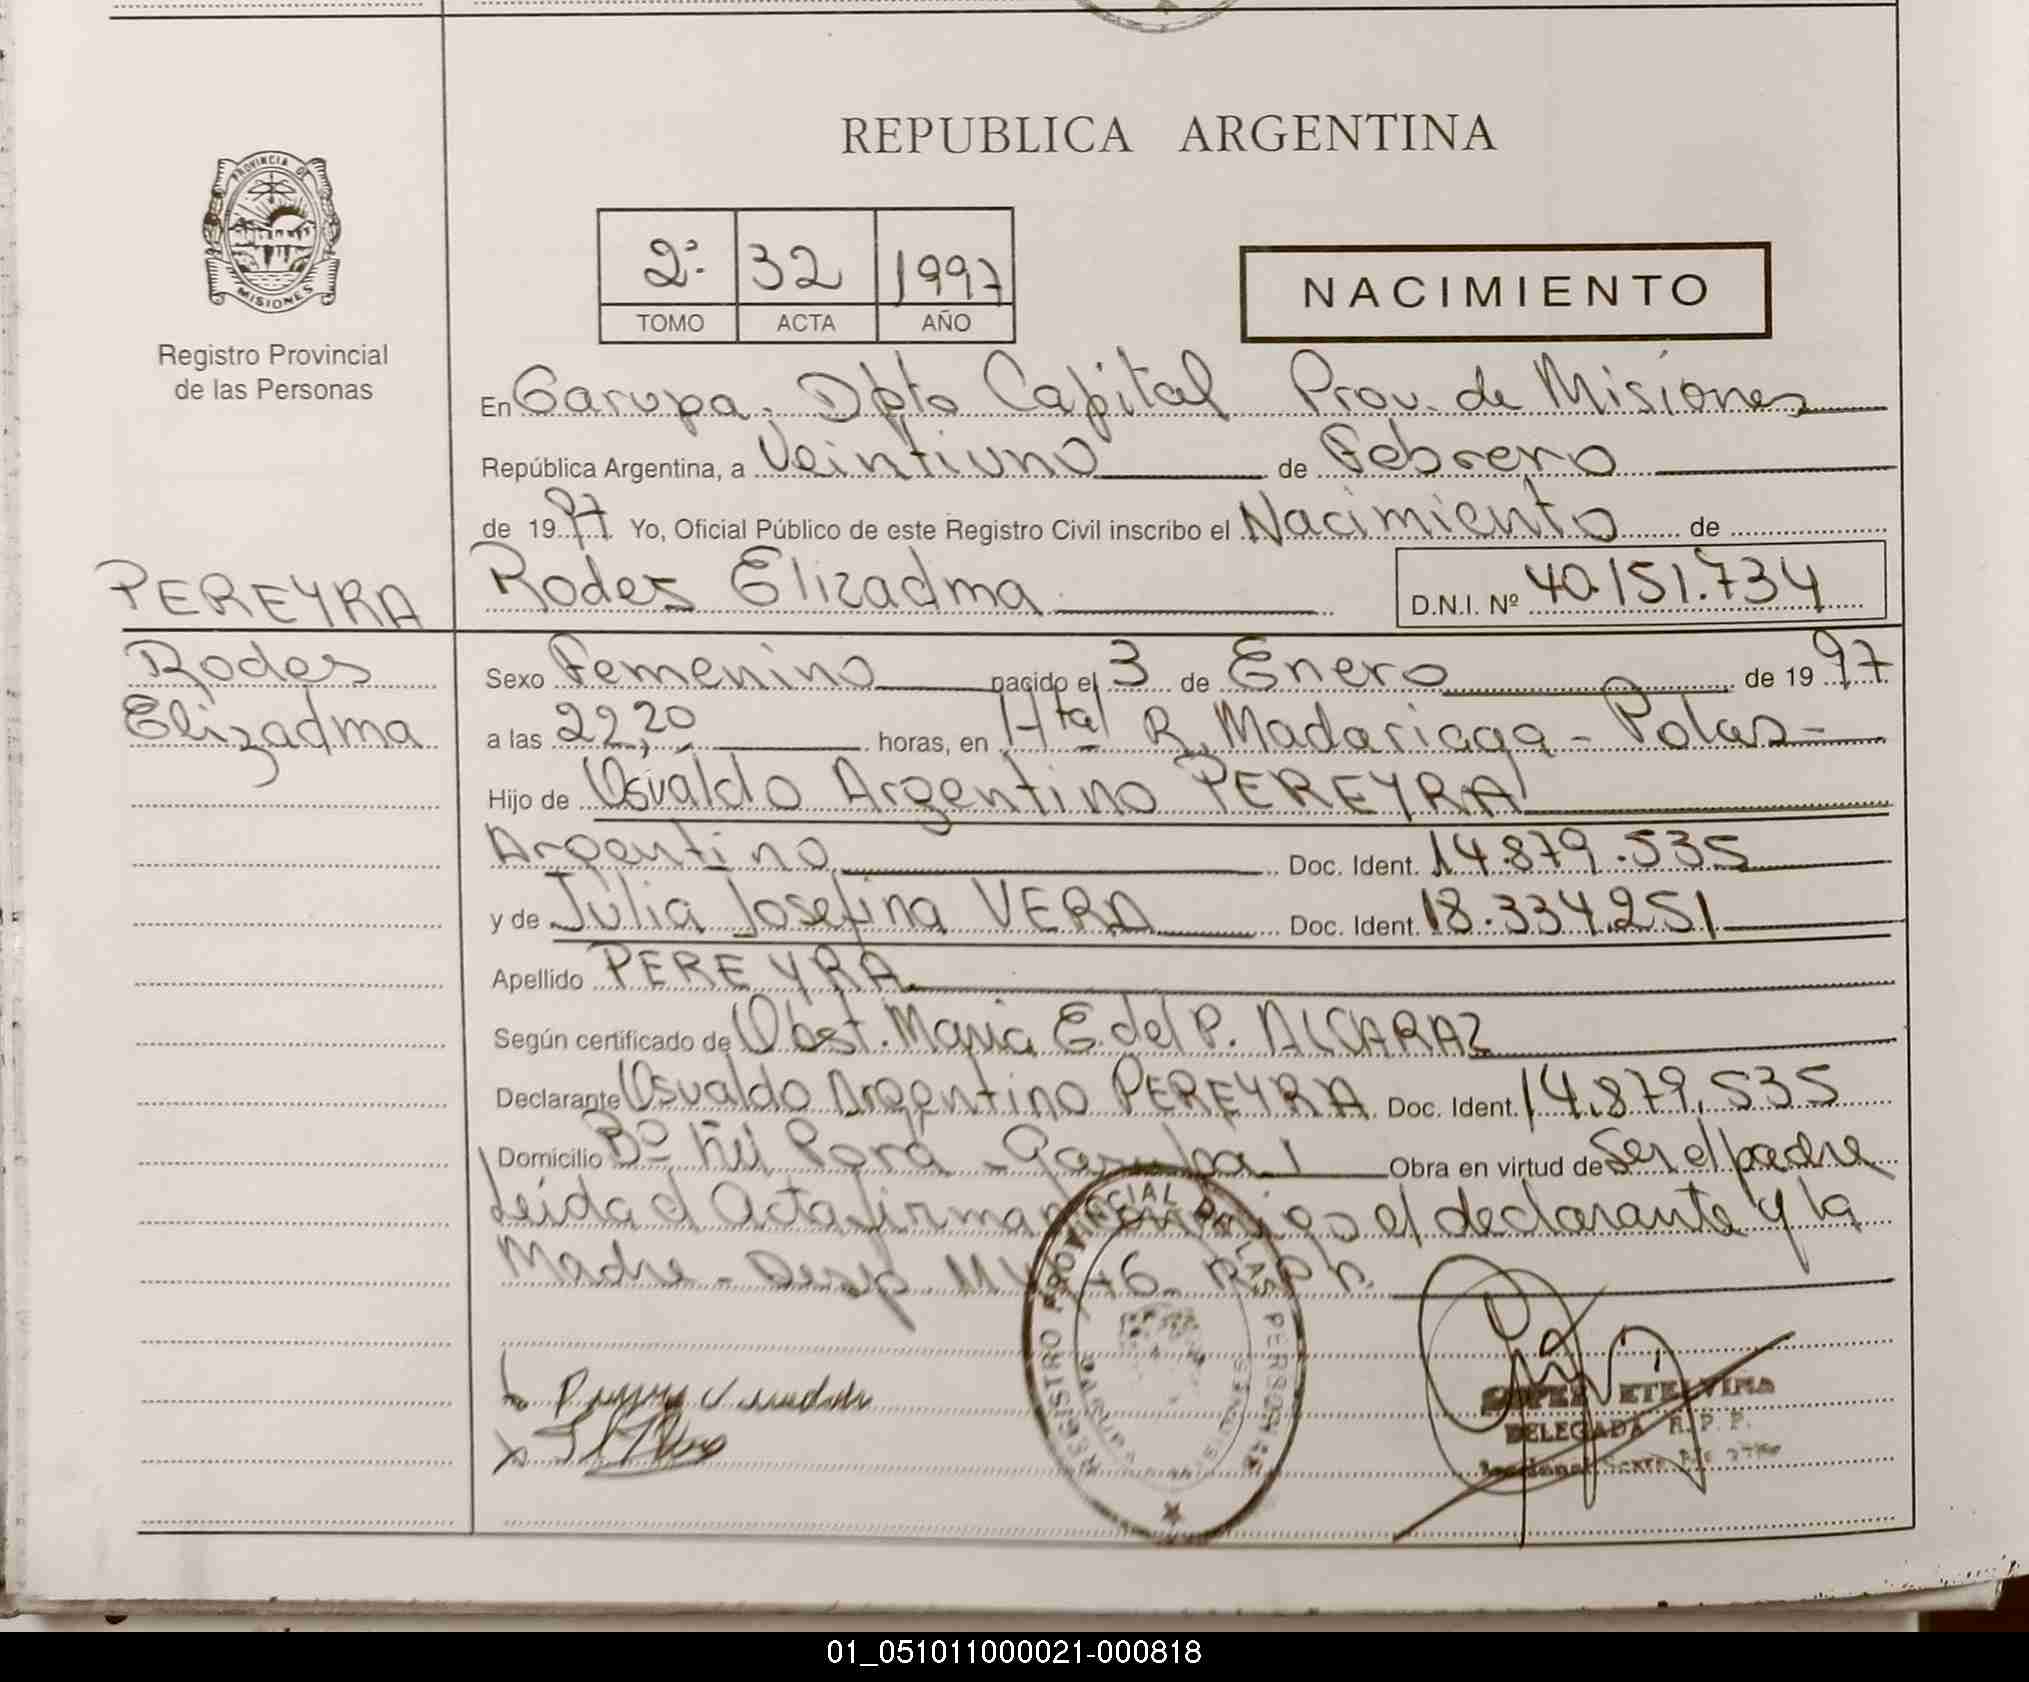 REPUBLICA ARGENTINA
PROVINCIA DE
MISIONES
Registro Provincial
de las Personas
2º 32 1997
TOMO ACTA AÑO
NACIMIENTO
En Garupa. Dpto Capital Prov. de Misiones
República Argentina, a Veintiuno de Febrero
de 1997 Yo, Oficial Público de este Registro Civil inscribo el Nacimiento de
PEREYRA
Rodes Elizadma D.N.I. Nº 40.151.734
Rodes
Elizadma
Sexo Femenino nacido el 3 de Enero de 1997
a las 22,20 horas, en Htal R. Madariaga - Pdas -
Hijo de Osvaldo Argentino PEREYRA
Argentino Doc. Ident. 14.879.535
y de Julia Josefina VERA Doc. Ident. 18.334.251
Apellido PEREYRA
Según certificado de Obst. Maria E. del P. ALCARAZ
Declarante Osvaldo Argentino PEREYRA Doc. Ident. 14.879.535
Domicilio Bº Ñu Pora - Garupa Obra en virtud de Ser el padre
Leida el Acta firman el declarante y la
Madre - R.P.P.
REGISTRO PROVINCIAL DE LAS PERSONAS
MISIONES
ETELVINA
DELEGADA R.P.P.
01_051011000021-000818